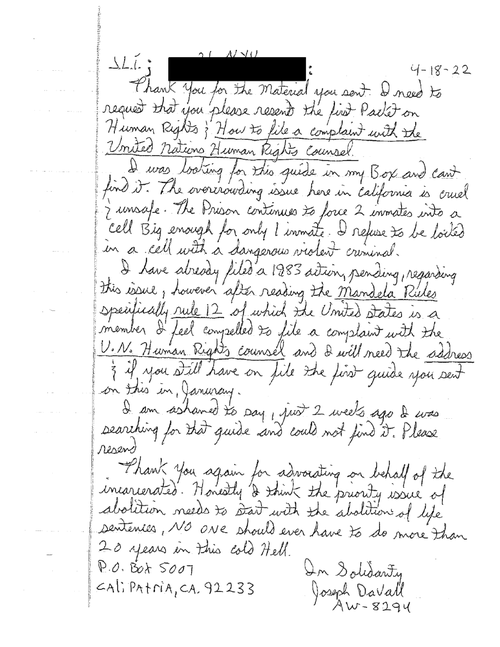 S.L.I. ; : 4-18-22
Thank you for the Material you sent. I need to
request that you please resent the first Packet on
Human Rights & How to file a complaint with the
United Nations Human Rights counsel.
I was looking for this guide in my Box and cant
find it. The overcrowding issue here in California is cruel
& unsafe. The Prison continues to force 2 inmates into a
cell Big enough for only 1 inmate. I refuse to be locked
in a cell with a dangerous violent criminal.
I have already filed a 1983 action, pending, regarding
this issue, however after reading the Mandela Rules
specifically rule 12 of which the United States is a
member I feel compelled to file a complaint with the
U.N. Human Rights counsel and I will need the address
& if you still have on file the first guide you sent
on this in, Januray.
I am ashamed to say, just 2 weeks ago I was
searching for that guide and could not find it. Please
resend
Thank you again for advocating on behalf of the
incarcerated. Honestly I think the priority issue of
abolition needs to start with the abolition of life
sentences, NO ONE should ever have to do more than
20 years in this cold Hell.
P.O. Box 5007 In Solidarity
CALiPATRiA, CA. 92233 Joseph Davall
AW-8294